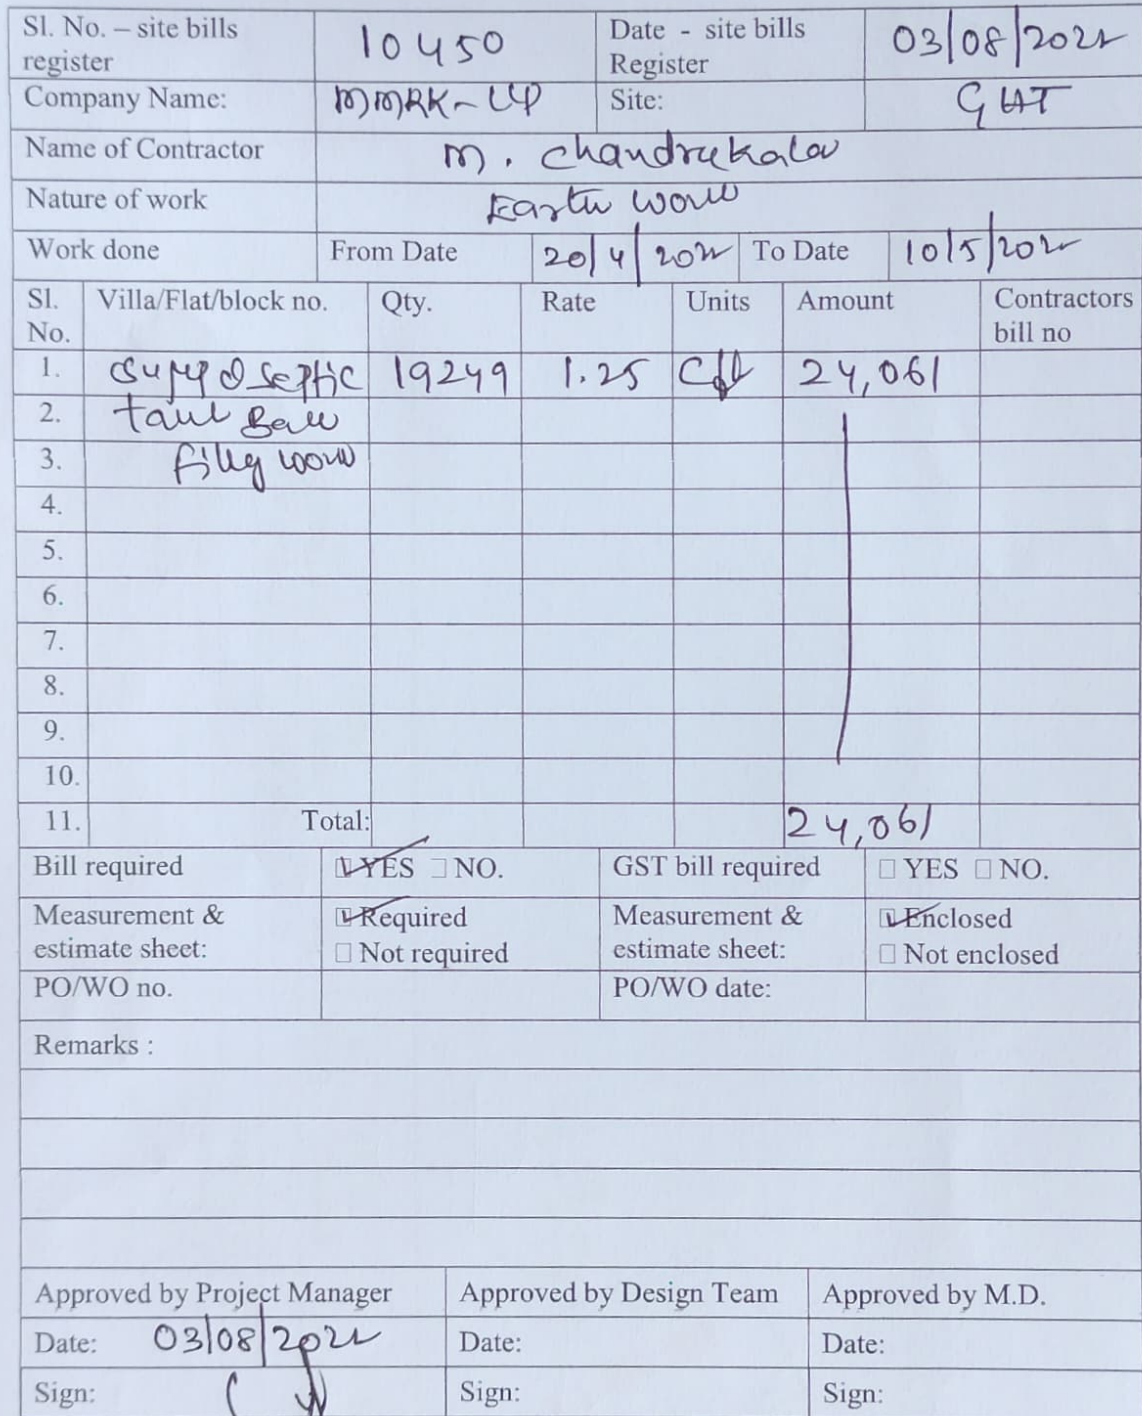 Sl. No. – site bills register 10450 Date - site bills Register 03/08/2022
Company Name: MMRK-LLP Site: GHT
Name of Contractor M. Chandrakala
Nature of work Earth work
Work done From Date 20/4/2022 To Date 10/5/2022
Sl. No. Villa/Flat/block no. Qty. Rate Units Amount Contractors bill no
1. Sump & Septic 19249 1.25 Cft 24,061
2. tank Back
3. filling work
4.
5.
6.
7.
8.
9.
10.
11. Total: 24,061
Bill required YES NO. GST bill required YES NO.
Measurement & estimate sheet: Required Not required Measurement & estimate sheet: Enclosed Not enclosed
PO/WO no. PO/WO date:
Remarks :
Approved by Project Manager Approved by Design Team Approved by M.D.
Date: 03/08/2022 Date: Date:
Sign: Sign: Sign: